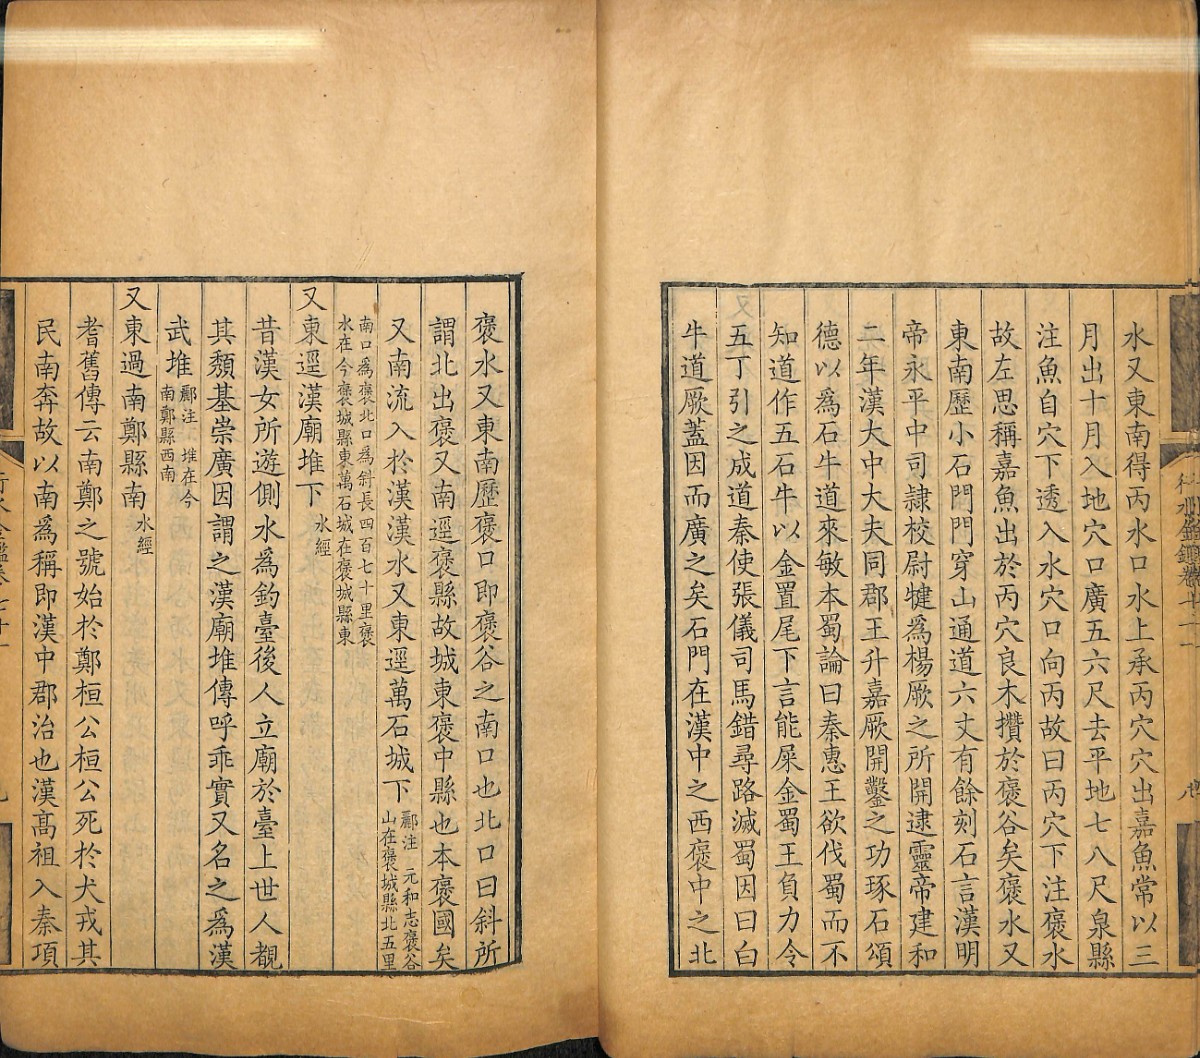 水又東南得丙水口水上承丙穴穴出嘉魚常以三
月出十月入地穴口廣五六尺去平地七八尺泉縣
注魚自穴下透入水穴口向丙故曰丙穴下注褒水
故左思稱嘉魚出於丙穴良木攢於褒谷矣褒水又
東南歷小石門門穿山通道六丈有餘刻石言漢明
帝永平中司隸校尉犍爲楊厥之所開逮靈帝建和
二年漢大中大夫同郡王升嘉厥開鑿之功琢石頌
德以爲石牛道來敏本蜀論曰秦惠王欲伐蜀而不
知道作五石牛以金置尾下言能屎金蜀王負力令
五丁引之成道秦使張儀司馬錯尋路滅蜀因曰石
牛道厥蓋因而廣之矣石門在漢中之西褒中之北
褒水又東南歷褒口即褒谷之南口也北口曰斜所
謂北出褒又南逕褒縣故城東褒中縣也本褒國矣
又南流入於漢漢水又東逕萬石城下 酈注 元和志褒谷
山在褒城縣北五里
南口爲褒北口爲斜長四百七十里褒
水在今褒城縣東萬石城在褒城縣東
又東逕漢廟堆下 水經
昔漢女所遊側水爲釣臺後人立廟於臺上世人覩
其頽基崇廣因謂之漢廟堆傳呼乖實又名之爲漢
武堆 酈注 堆在今
南鄭縣西南
又東過南鄭縣南 水經
耆舊傳云南鄭之號始於鄭桓公桓公死於犬戎其
民南奔故以南爲稱即漢中郡治也漢高祖入秦項